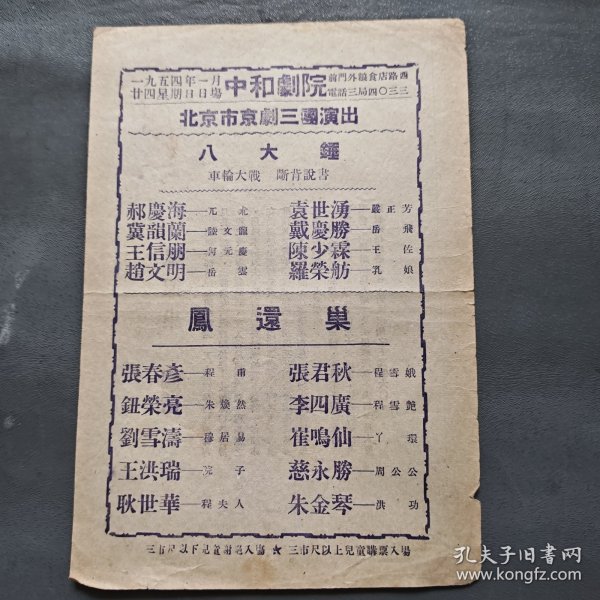 一九五四年一月
廿四星期日日場
中和劇院
前門外糧食店路西
電話三局四〇三三
北京市京劇三團演出
八大錘
車輪大戰 斷背說書
郝慶海—兀朮 袁世湧—嚴正芳
冀韻蘭—陸文龍 戴慶勝—岳飛
王信朋—何元慶 陳少霖—王佐
趙文明—岳雲 羅榮舫—乳娘
鳳還巢
張春彥—程甫 張君秋—程雪娥
鈕榮亮—朱煥然 李四廣—程雪艷
劉雪濤—穆居易 崔鳴仙—丫環
王洪瑞—完子 慈永勝—周公公
耿世華—程夫人 朱金琴—洪功
三市尺以下兒童謝絕入場★三市尺以上兒童購票入場
孔夫子旧书网
www.kongfz.com